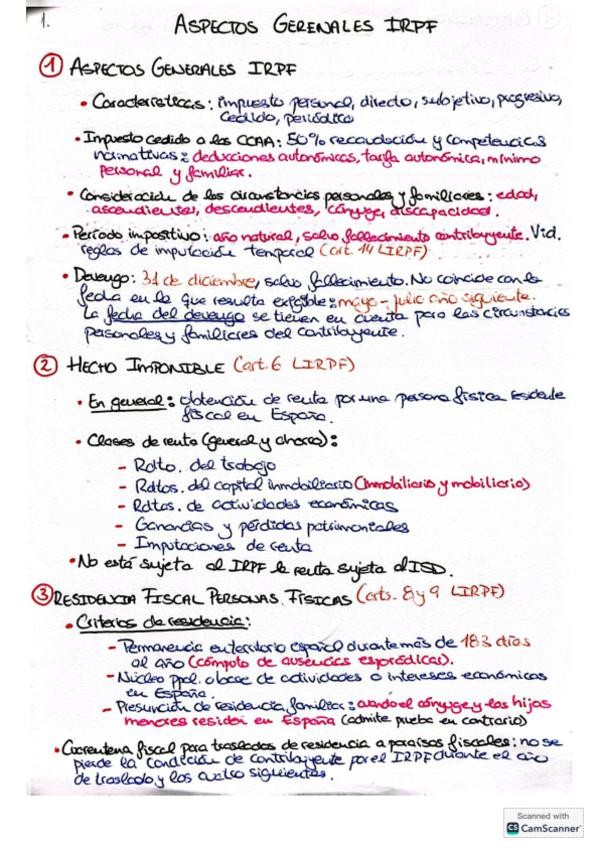 1.
ASPECTOS GERENALES IRPF
① ASPECTOS GENERALES IRPF
• Características: impuesto personal, directo, subjetivo, progresivo,
cedido, periódico
• Impuesto cedido a las CCAA: 50% recaudación y competencias
normativas: deducciones autonómicas, tarifa autonómica, mínimo
personal y familiar.
• Consideración de las circunstancias personales y familiares: edad,
ascendientes, descendientes, cónyuge, discapacidad.
• Período impositivo: año natural, salvo fallecimiento contribuyente. Vid.
reglas de imputación temporal (art. 14 LIRPF)
• Devengo: 31 de diciembre, salvo fallecimiento. No coincide con la
fecha en la que resulta exigible: mayo - julio año siguiente.
La fecha del devengo se tienen en cuenta para las circunstancias
personales y familiares del contribuyente.
② HECHO IMPONIBLE (art. 6 LIRPF)
• En general: obtención de renta por una persona física residente
fiscal en España.
• Clases de renta (general y ahorro):
- Rdto. del trabajo
- Rdtos. del capital inmobiliario (Inmobiliario y mobiliario)
- Rdtos. de actividades económicas
- Ganancias y pérdidas patrimoniales
- Imputaciones de renta
• No está sujeta al IRPF la renta sujeta al ISD.
③ RESIDENCIA FISCAL PERSONAS FÍSICAS (arts. 8 y 9 LIRPF)
• Criterios de residencia:
- Permanencia en territorio español durante más de 183 días
al año (cómputo de ausencias esporádicas).
- Núcleo ppal. o base de actividades o intereses económicos
en España.
- Presunción de residencia familiar: cuando el cónyuge y los hijos
menores residan en España (admite prueba en contrario)
• Cuarentena fiscal para traslados de residencia a paraísos fiscales: no se
pierde la condición de contribuyente por el IRPF durante el año
de traslado y los cuatro siguientes.
Scanned with
CS CamScanner